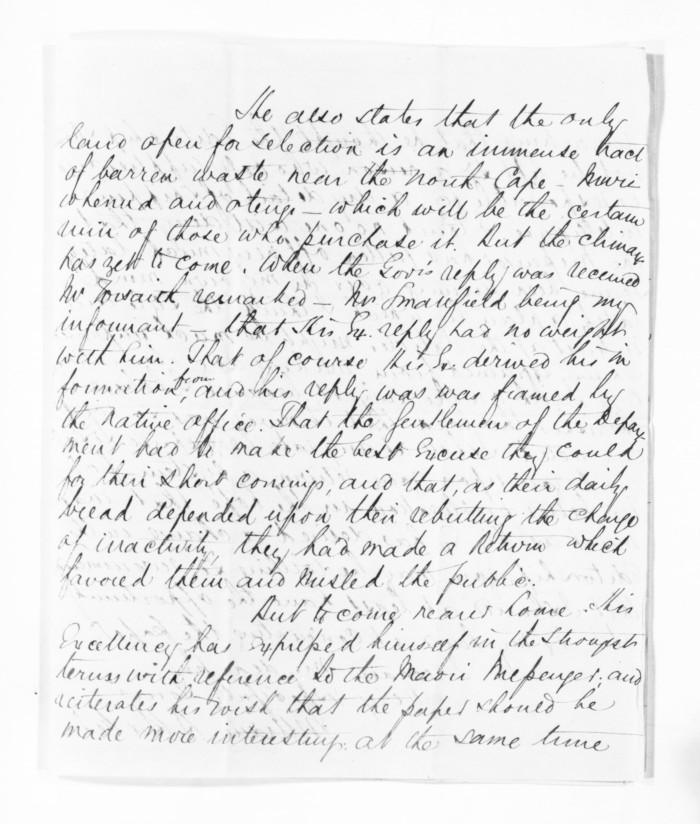 He also states that the only
land open for selection is an immense tract
of barren waste near the North Cape - Muri
whenua and otengi - which will be the certain
ruin of those who purchase it. But the climax
has yet to come. When the Gov's reply was received
Mr Forsaith remarked - Mr Smalfield being my
informant - that His Ex. reply had no weight
with him. That of course His Ex. derived his in
formation from, and his reply was was framed by
the Native office. That the Gentlemen of the Depart
ment had to make the best Excuse they could
for their short comings, and that, as their daily
bread depended upon their rebutting the charge
of inactivity, they had made a Return which
favored them and misled the public.
But to come nearer home. His
Excellency has expressed himself in the strongest
terms with reference to the Maori Messenger; and
reiterates his wish that the paper should be
made more interesting. at the same time